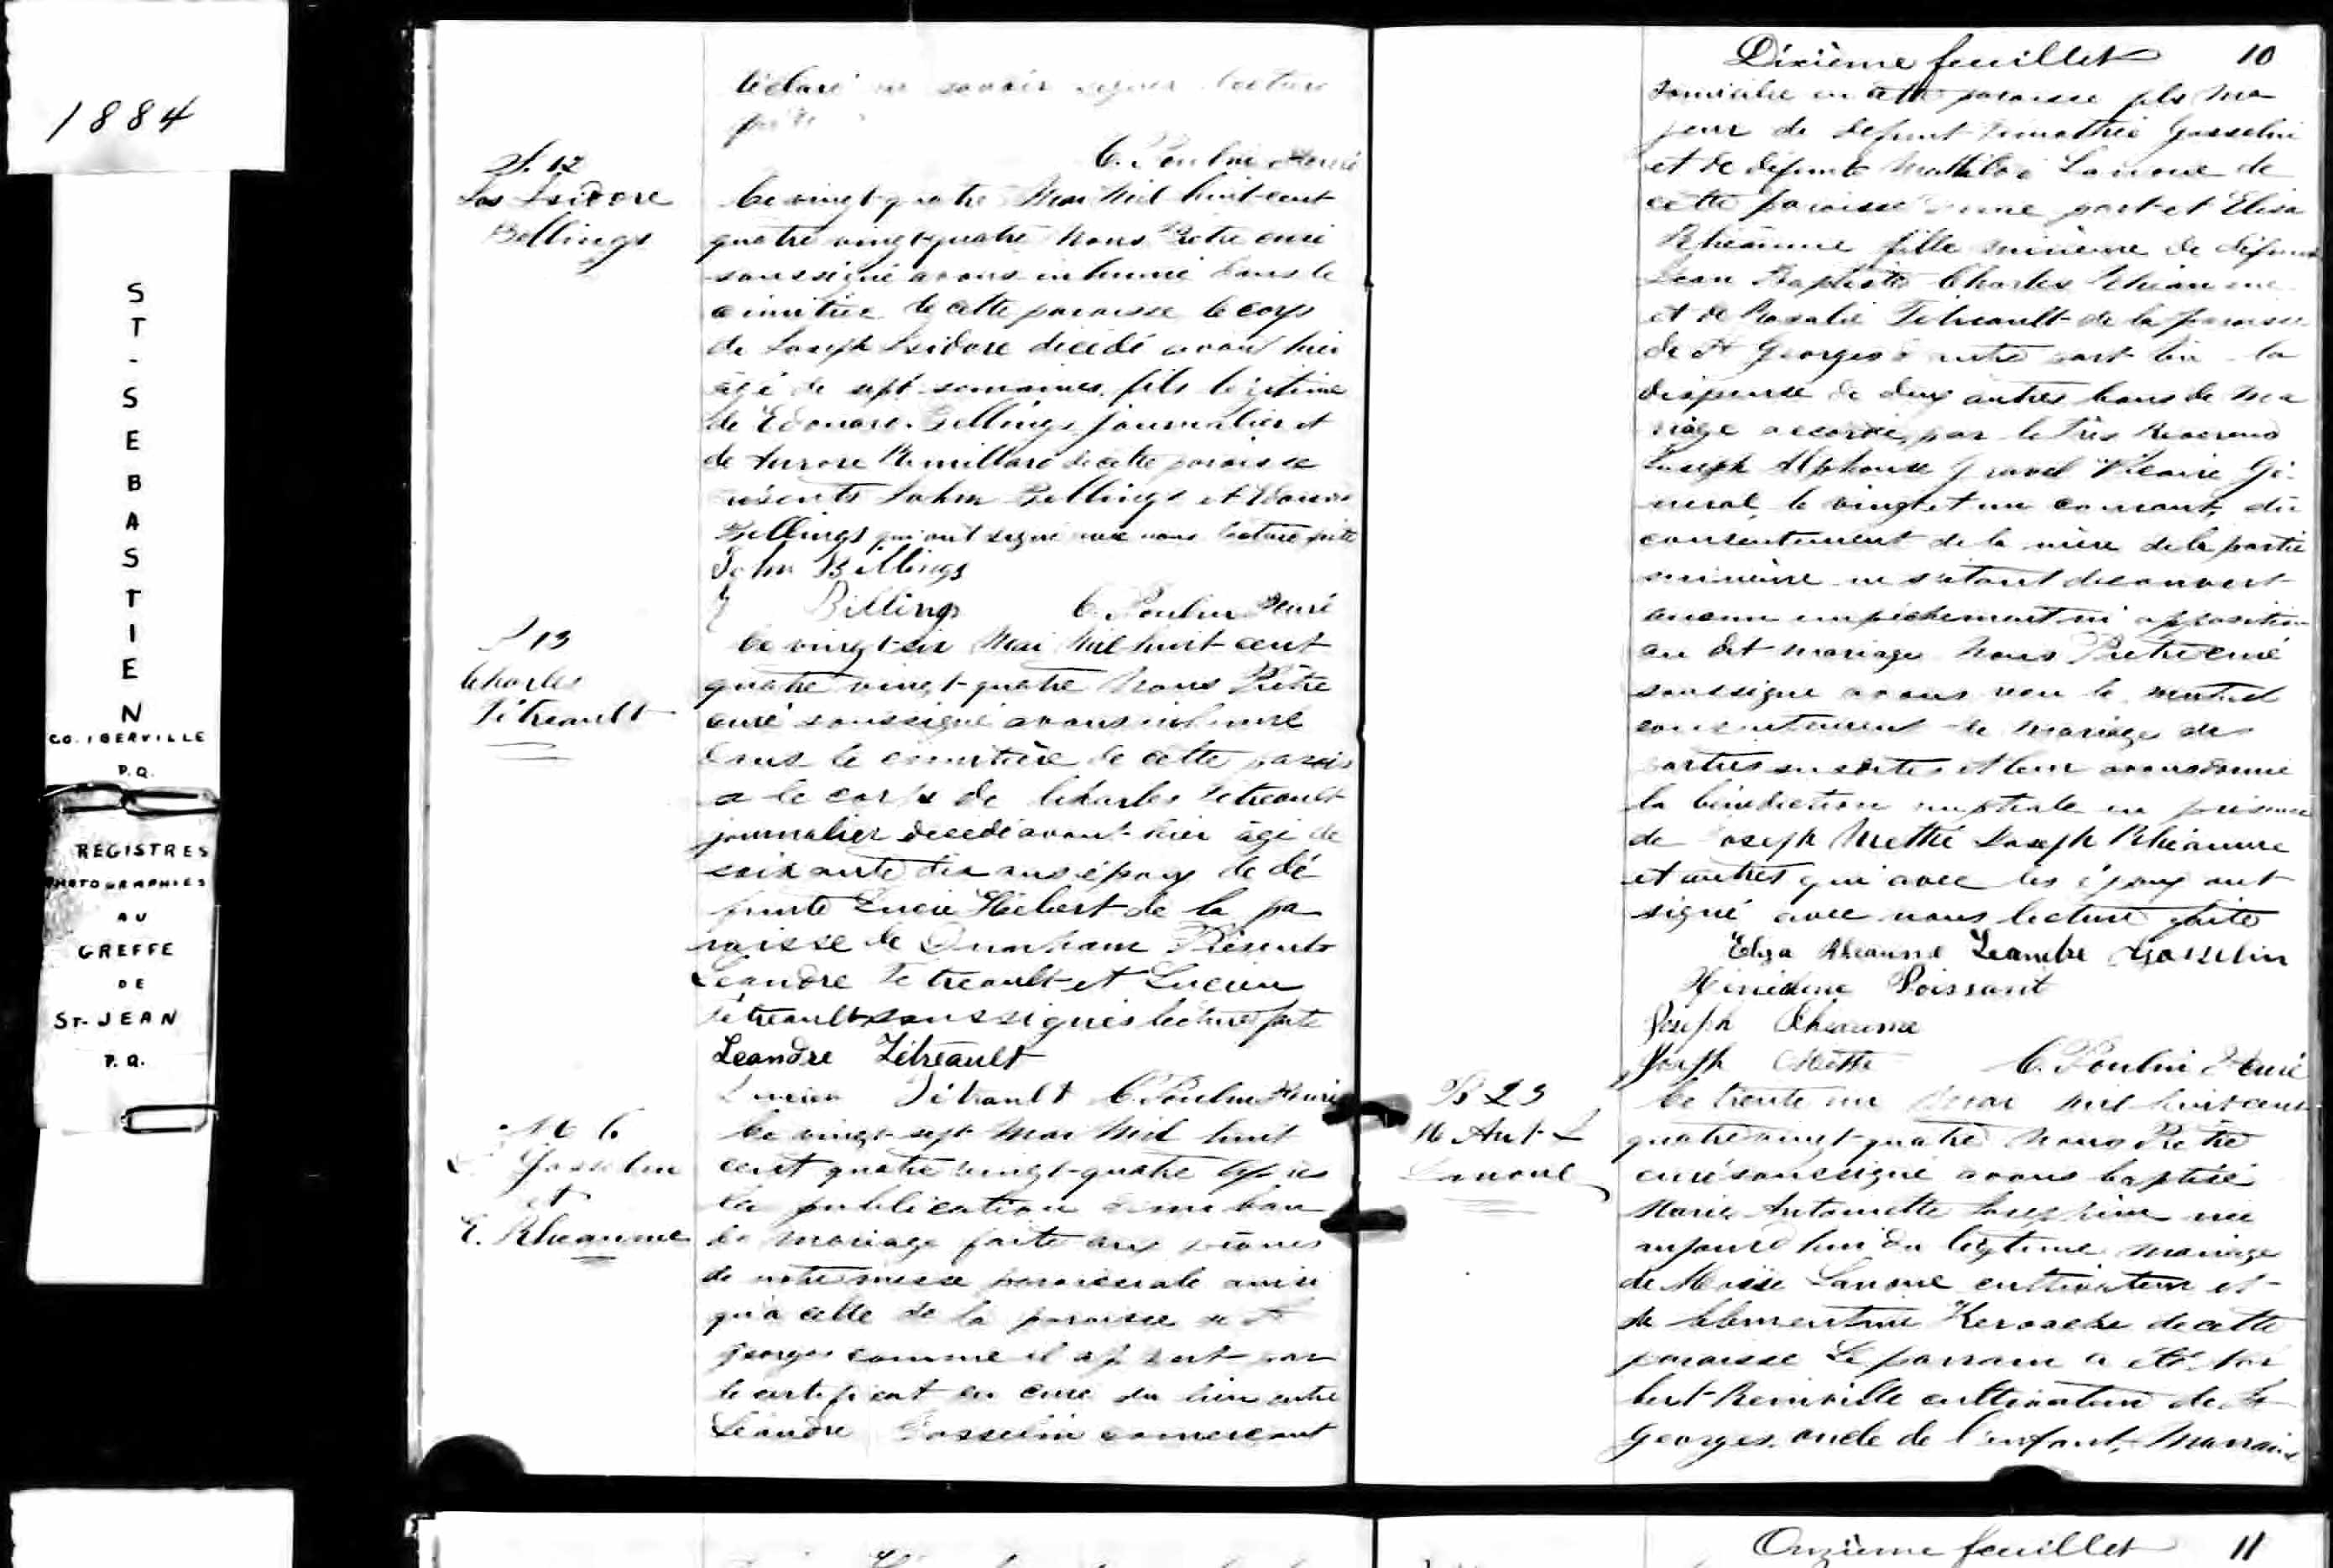 1884
ST-SEBASTIEN
CO. IBERVILLE
P.Q.
REGISTRES
PHOTOGRAPHIES
AU
GREFFE
DE
ST-JEAN
P.Q.
déclaré ne savoir signer lecture
faite
C. Poulin Ptre curé
S. 12
Jos Isidore
Billings
Le vingt-quatre Mai Mil huit-cent
quatre vingt-quatre Nous Prêtre curé
soussigné avons inhumé dans le
cimitière de cette paroisse le corps
de Joseph Isidore décédé avant hier
âgé de sept semaines fils légitime
de Edouard Billings journalier et
de Aurore Remillard de cette paroisse
présents John Billings et Edouard
Billings qui ont signé avec nous lecture faite
John Billings
E Billings C. Poulin Ptre curé
S 13
Charles
Tétreault
Le vingt-six Mai Mil huit-cent
quatre vingt-quatre Nous Prêtre
curé soussigné avons inhumé
dans le cimetière de cette parois
se le corps de Charles Tétreault
journalier décédé avant-hier âgé de
soixante dix ans époux de dé
funte Lucie Hébert de la pa
roisse de Durham Présents
Léandre Tetreault et Lucien
Tétreault soussignés lecture faite
Leandre Tétreault
Lucien Tétrault C. Poulin Ptre curé
M 6
L. Gosselin
et
E. Rheaume
Le vingt-sept Mai Mil huit
cent quatre vingt-quatre Après
la publication d'un ban
de mariage faite aux prônes
de notre messe paroissiale ainsi
qu'à celle de la paroisse de St
Georges comme il appert par
le certificat du curé du lieu entre
Léandre Gosselin commerçant
Dixième feuillet 10
domicilié en cette paroisse fils ma
jeur de défunt Timothée Gosselin
et de défunte Mathilde Lanoue de
cette paroisse d'une part et Elisa
Rhéaume fille mineure de défunt
Jean Baptiste Charles Rhéaume
et de Rosalie Tétreault de la paroisse
de St Georges d'autre part Vu la
dispense de deux autres bans de ma
riage accordée par le Très Révérend
Joseph Alphonse Gravel Vicaire Gé-
néral, le vingt et un courant, du
consentement de la mère de la partie
mineure ne s'étant découvert
aucun empêchement ni opposition
au dit mariage Nous Prêtre curé
soussigné avons reçu le mutuel
consentement de mariage des
parties susdites et leur avons donné
la bénédiction nuptiale en présence
de Joseph Methé Joseph Rhéaume
et autres qui avec les époux ont
signé avec nous lecture faite
Eliza Rheaume Leandre Gosselin
Poissant
Joseph Rheaume
Joseph Methé C. Poulin Ptre curé
B 23
M Ant. J
Lanoue
Le trente un Mai Mil huit cent
quatre vingt-quatre Nous Prêtre
curé soussigné avons baptisé
Marie Antoinette Josephine née
aujourd'hui du légitime mariage
de Moïse Lanoue cultivateur et
de Clementine de cette
paroisse Le parrain a été Nor
bert Reinville cultivateur de St
Georges oncle de l'enfant, Marraine
Onzième feuillet 11